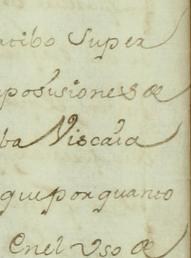 recibo Super
posisiones de
ba Viscaia
que por quanto
en el Uso de